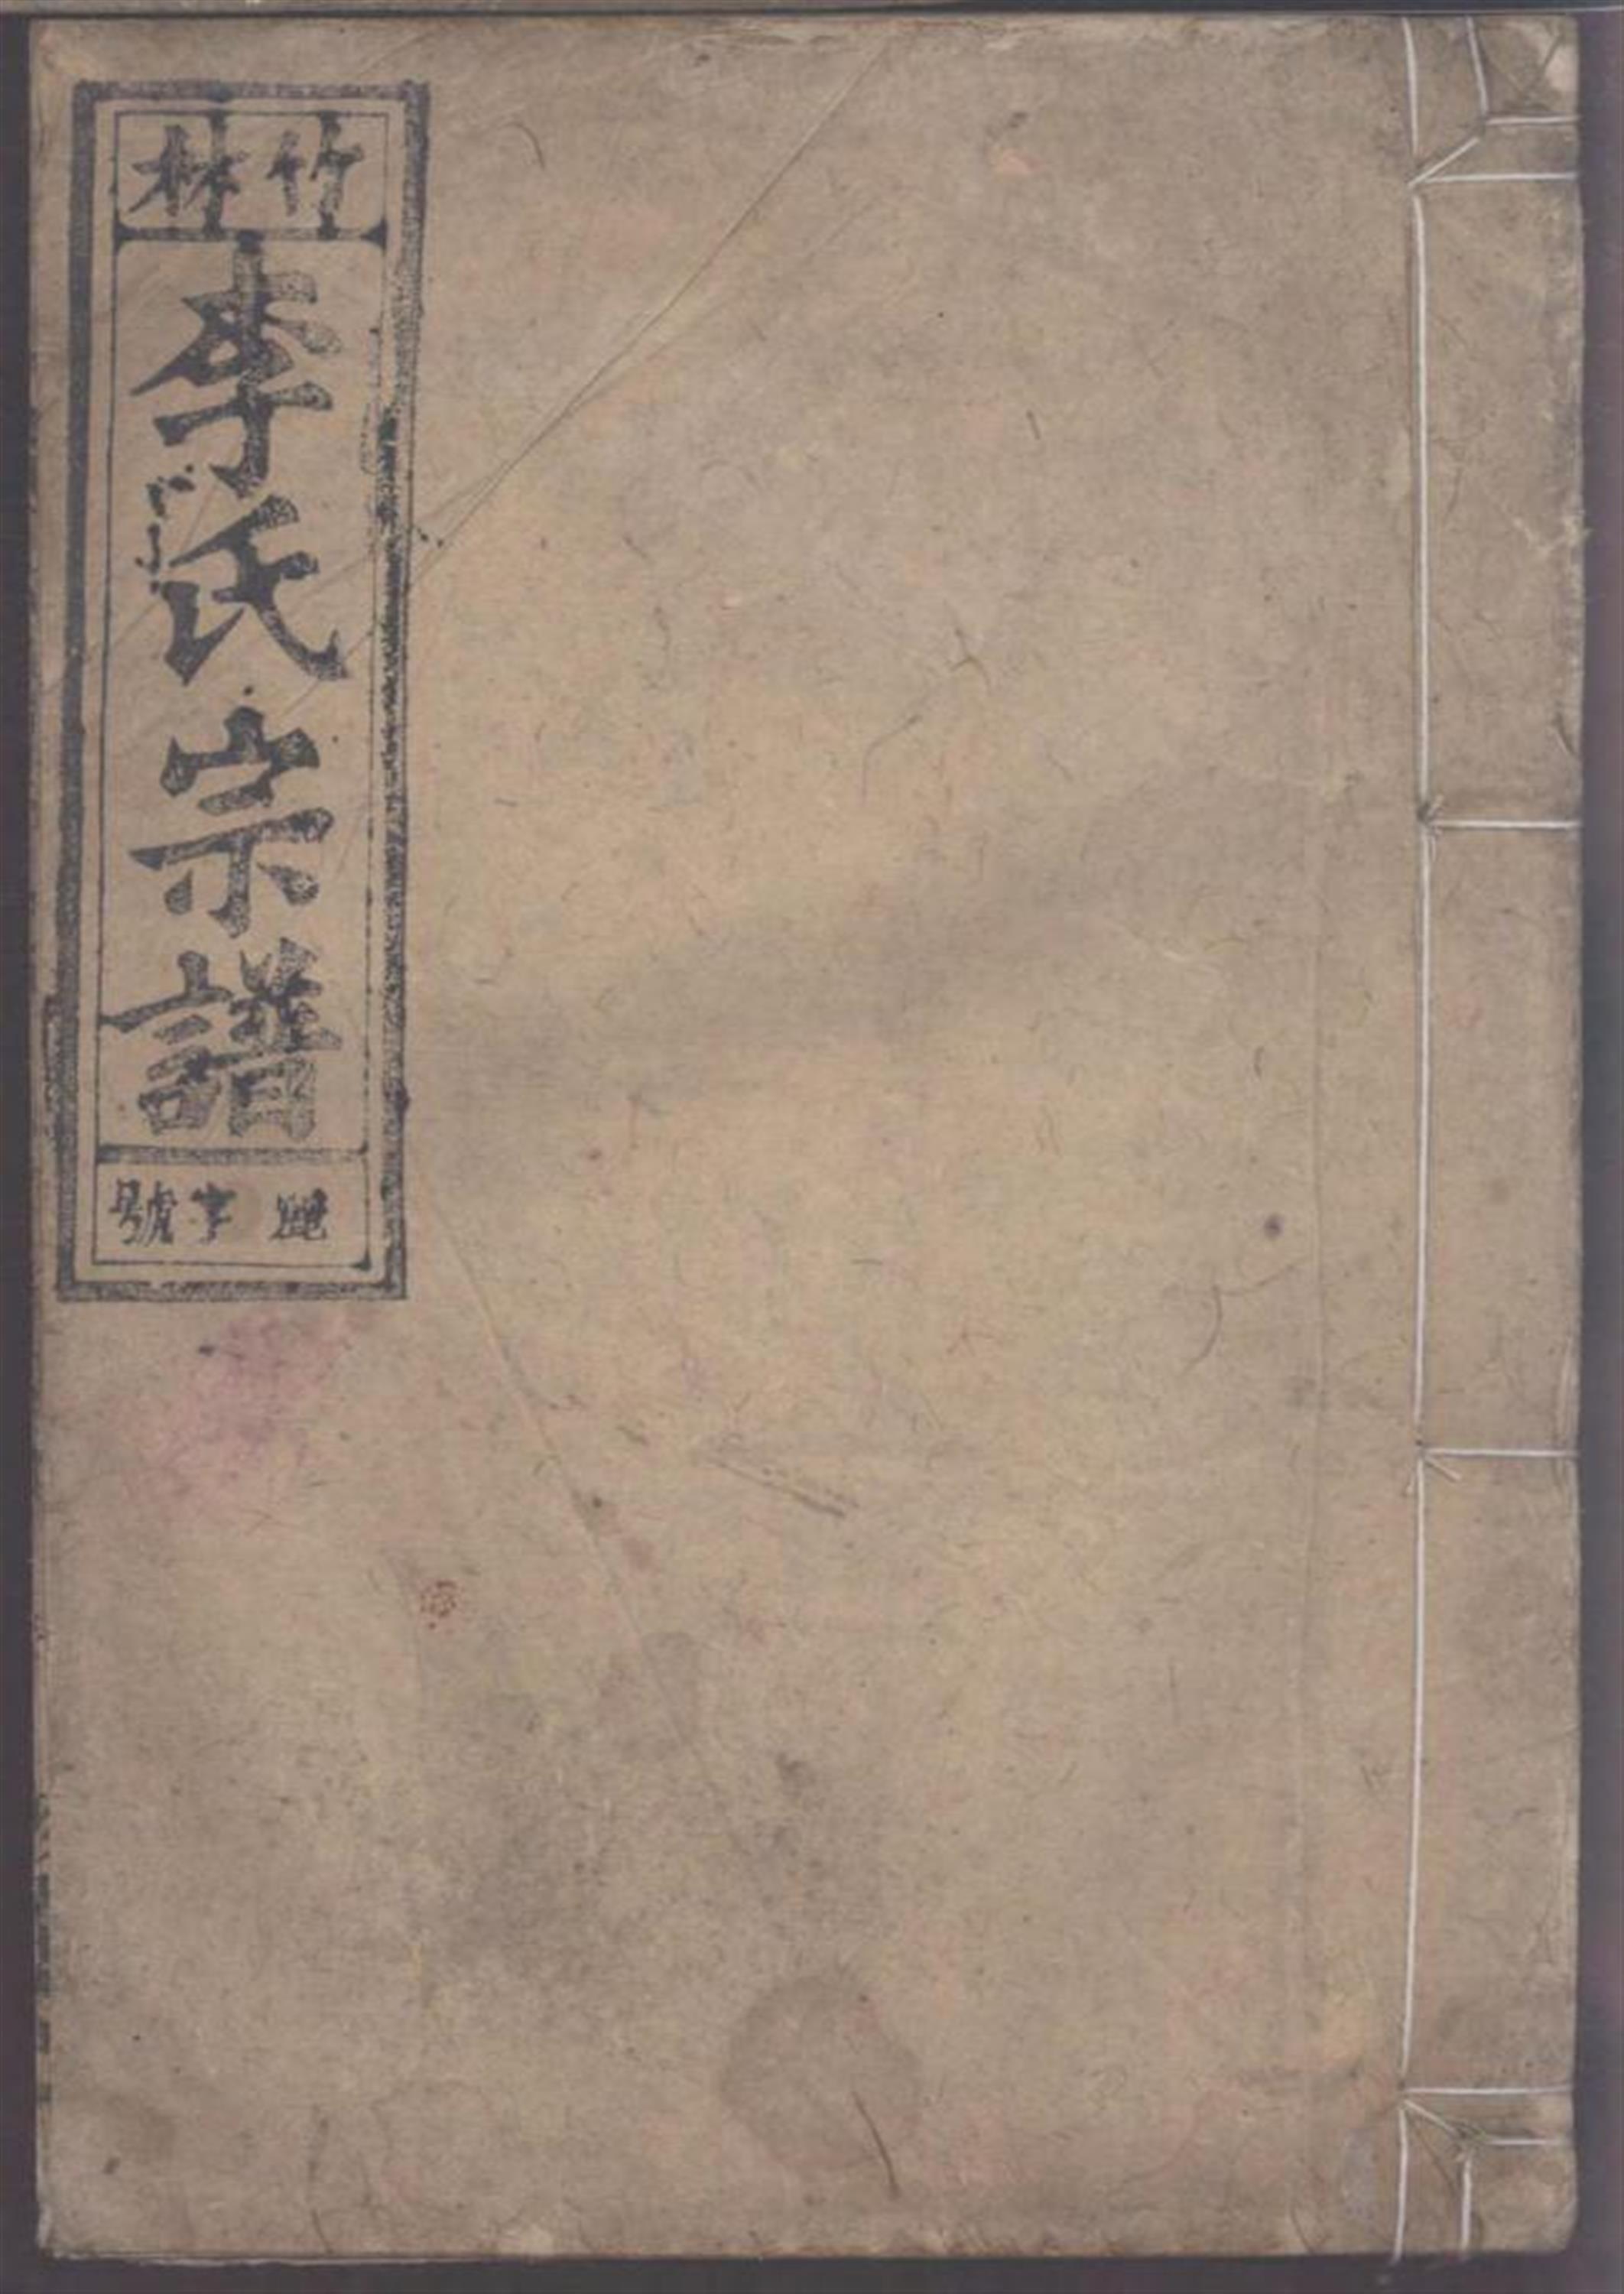 竹林
李氏宗譜
字號